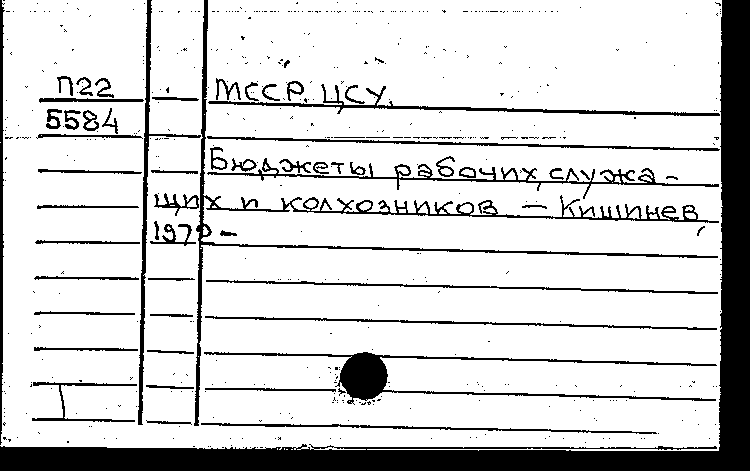 П22
МССР. ЦСУ.
5584
Бюджеты рабочих, служа-
щих и колхозников — Кишинев,
1970 —